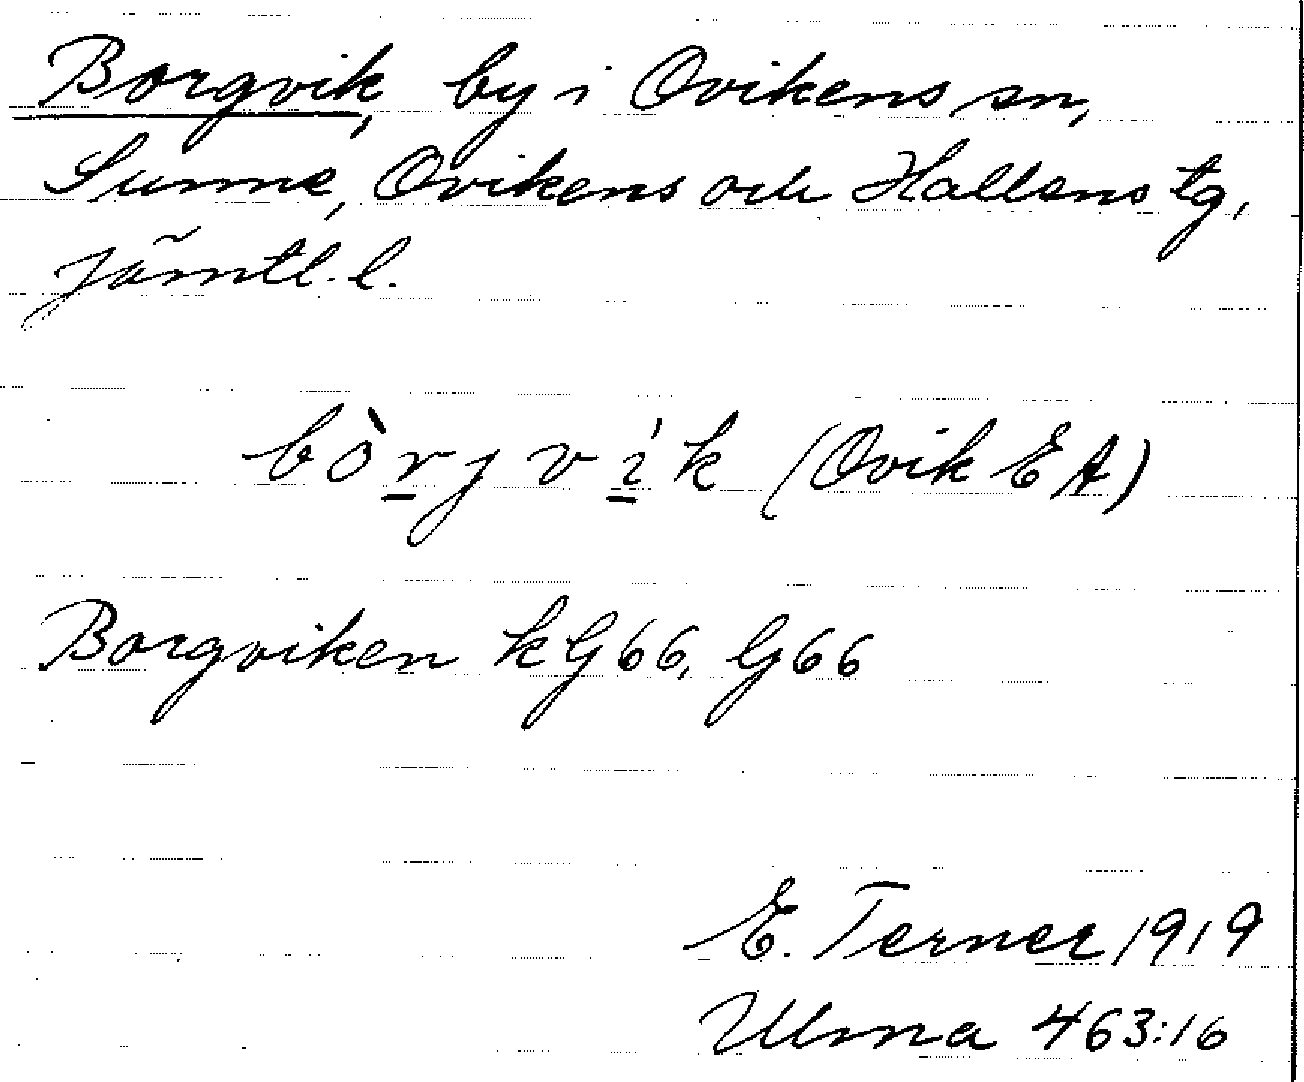 Borgvik, by i Ovikens sn,
Sunne, Ovikens och Hallens tg,
Jämtl. l.
bòrjvík (Ovik EA)
Borgviken kG66, G66
E. Terner 1919
Ulma 463:16